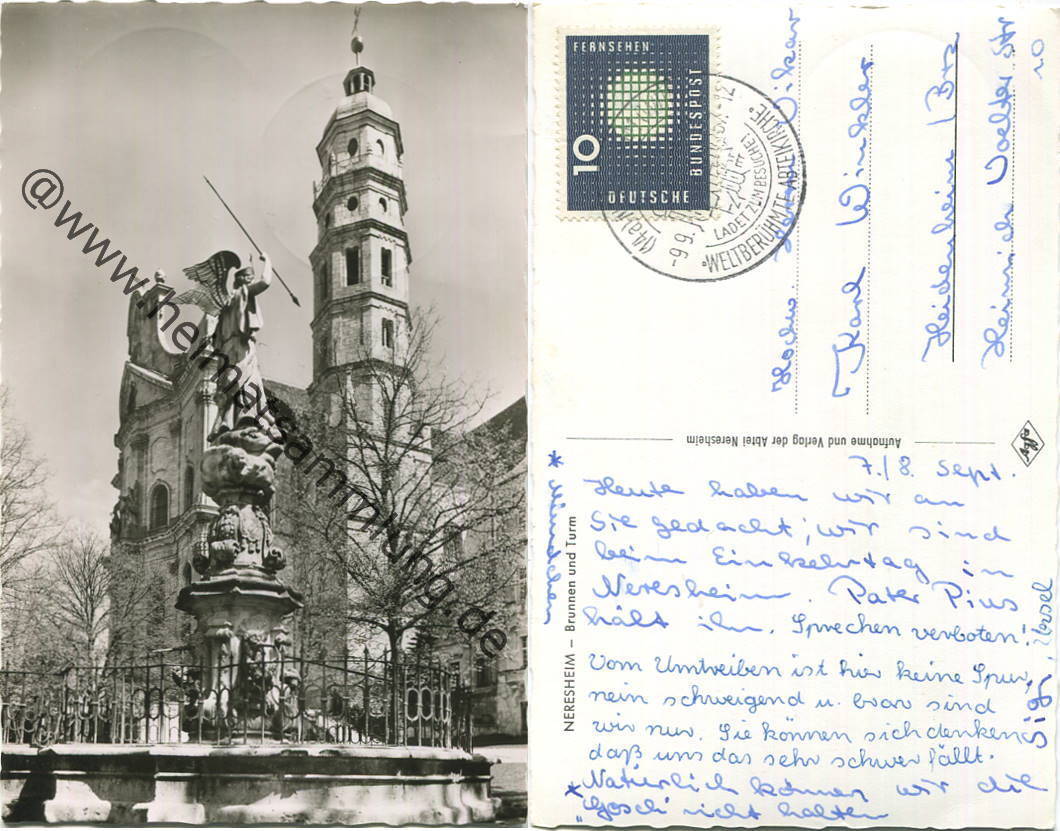 @www.heimatsammlung.de
FERNSEHEN
10
DEUTSCHE
BUNDESPOST
(14a)
-9.9.
LADET ZUM BESUCHE!
*WELTBERÜHMTE ABTEIKIRCHE*
Hochw. Herrn Vikar
Karl Winkler
Heidenheim / Brz
Heinrich Voelter Str
10
Aufnahme und Verlag der Abtei Neresheim
NERESHEIM – Brunnen und Turm
7./8. Sept.
Heute haben wir an
Sie gedacht, wir sind
beim Einkehrtag in
Neresheim. Pater Pius
hält ihn. Sprechen verboten!
Vom Umtreiben ist hier keine Spur,
nein schweigend u. brav sind
wir nur. Sie können sich denken
daß uns das sehr schwer fällt.
* Natürlich können wir die
"Gosch" nicht halten
* Mündchen
Sigi, Ursel